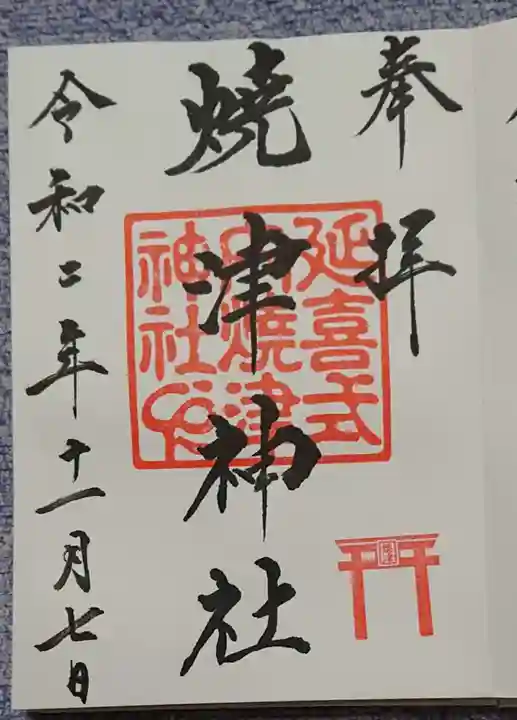 奉拝
燒津神社
延喜式
内燒津
神社
令和二年十一月七日